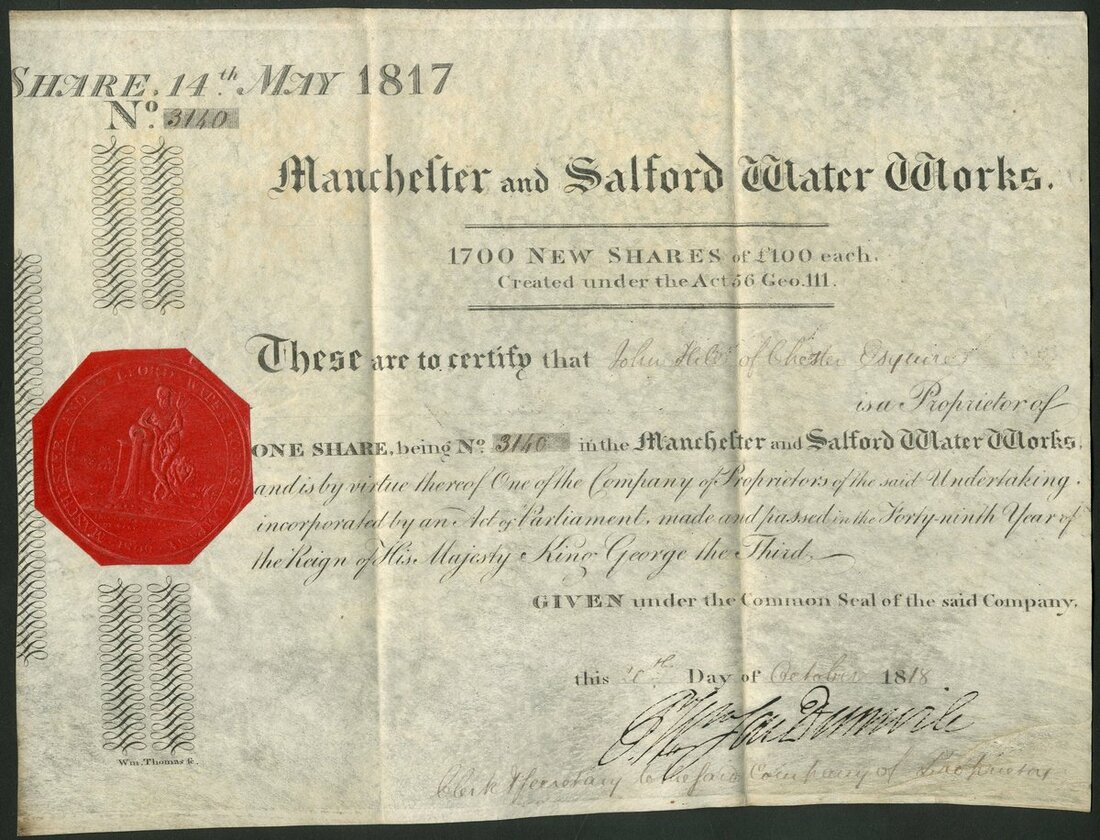 SHARE, 14th MAY 1817
No. 3140
Manchester and Salford Water Works.
1700 NEW SHARES of £100 each.
Created under the Act 56 Geo. 111.
These are to certify that John of Chester Esquire
is a Proprietor of
ONE SHARE, being No. 3140 in the Manchester and Salford Water Works,
and is by virtue thereof One of the Company of Proprietors of the said Undertaking,
incorporated by an Act of Parliament, made and passed in the Forty-ninth Year of
the Reign of His Majesty King George the Third.
GIVEN under the Common Seal of the said Company,
this Day of October 1818
Clerk & Secretary to the said Company of Proprietors
Wm. Thomas sc.